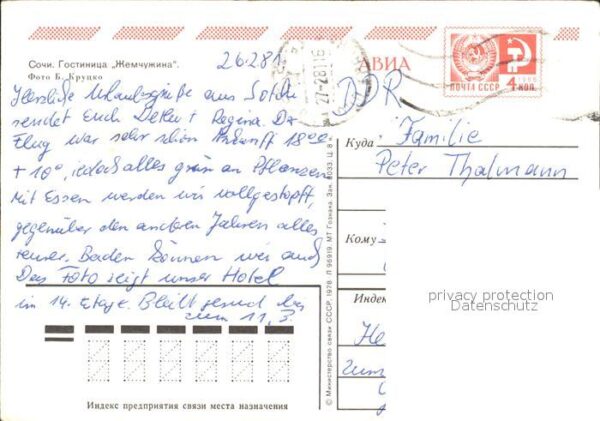 Сочи. Гостиница „Жемчужина".
Фото Б. Круцко
26.2.81
Herzliche Urlaubsgrüße aus Sotchi
sendet Euch Detlef + Regina. Der
Flug war sehr schön Ankunft 18 00
+ 10°, jedoch alles grün an Pflanzen
Mit Essen werden wir vollgestopft,
gegenüber den anderen Jahren alles
teurer. Baden können wir auch
Das Foto zeigt unser Hotel
im 14. Etage. Bleibt gesund bis
zum 11.3.
Индекс предприятия связи места назначения
© Министерство связи СССР. 1978. Л 96919. МТ Гознака. Зак. 8033. Ц. 8 к.
27-2-81 16
АВИА
ПОЧТА СССР
4 КОП.
DDR
Куда
Familie
Peter Thalmann
Кому
Индекс
He
privacy protection
Datenschutz